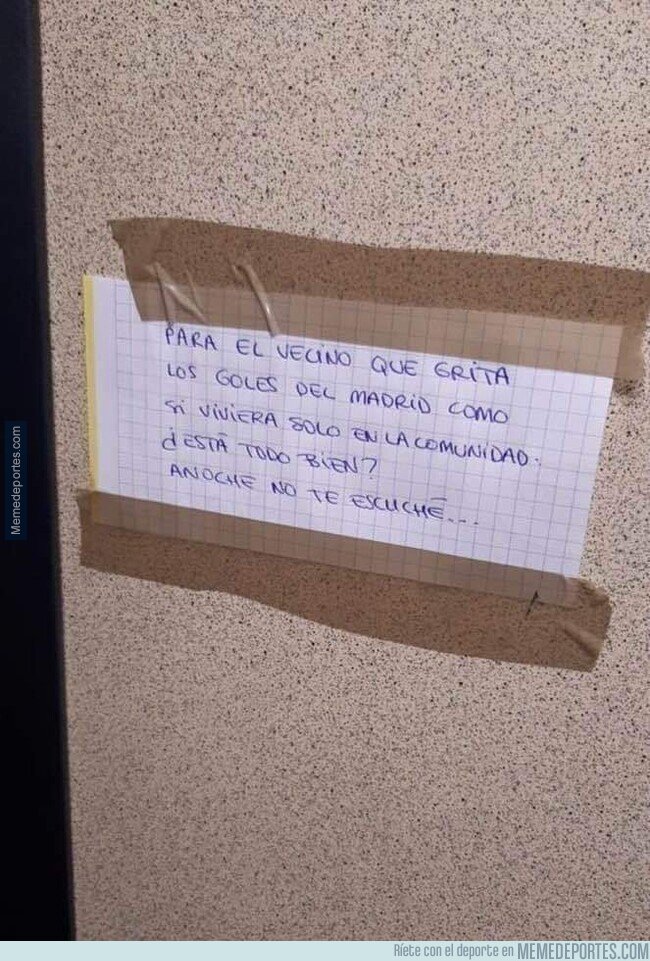 PARA EL VECINO QUE GRITA
LOS GOLES DEL MADRID COMO
SI VIVIERA SOLO EN LA COMUNIDAD:
¿ESTÁ TODO BIEN?
ANOCHE NO TE ESCUCHÉ...
Memedeportes.com
Ríete con el deporte en MEMEDEPORTES.COM